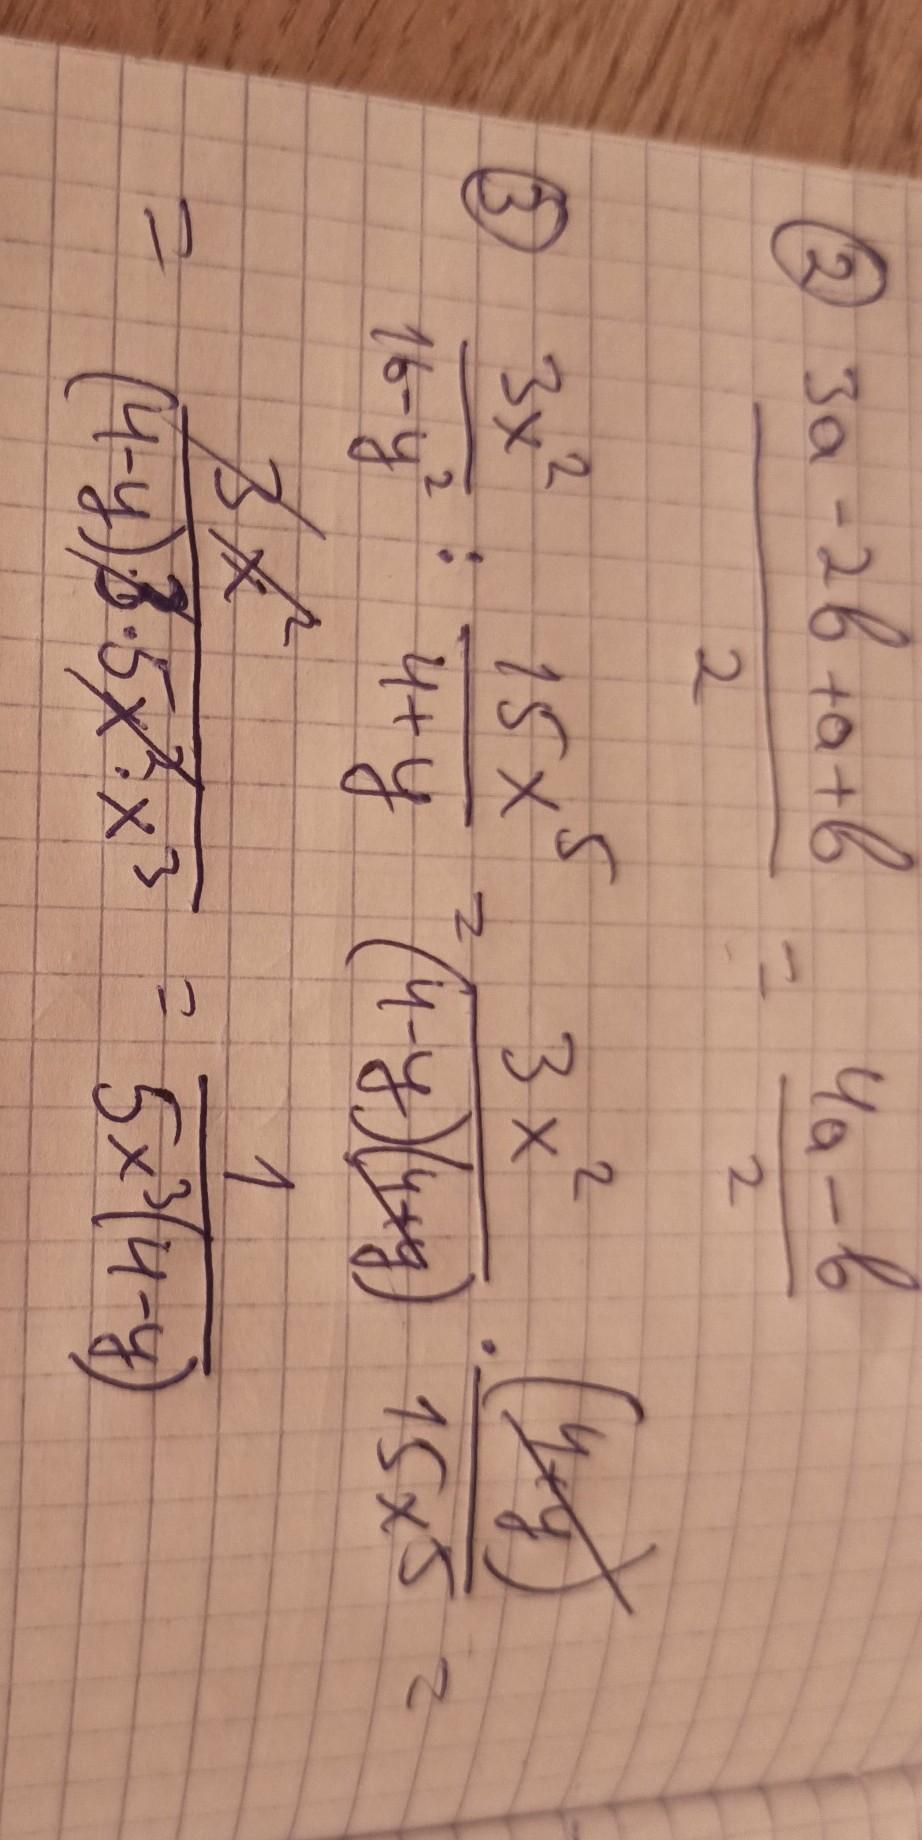 ② (3a - 2b + a + b)/2 = (4a - b)/2
③ 3x²/(16 - y²) : 15x⁵/(4 + y) = 3x²/((4 - y)(4 + y)) · (4 + y)/(15x5) =
= 3x²/((4 - y) 3 · 5x² · x³) = 1/(5x³(4 - y))